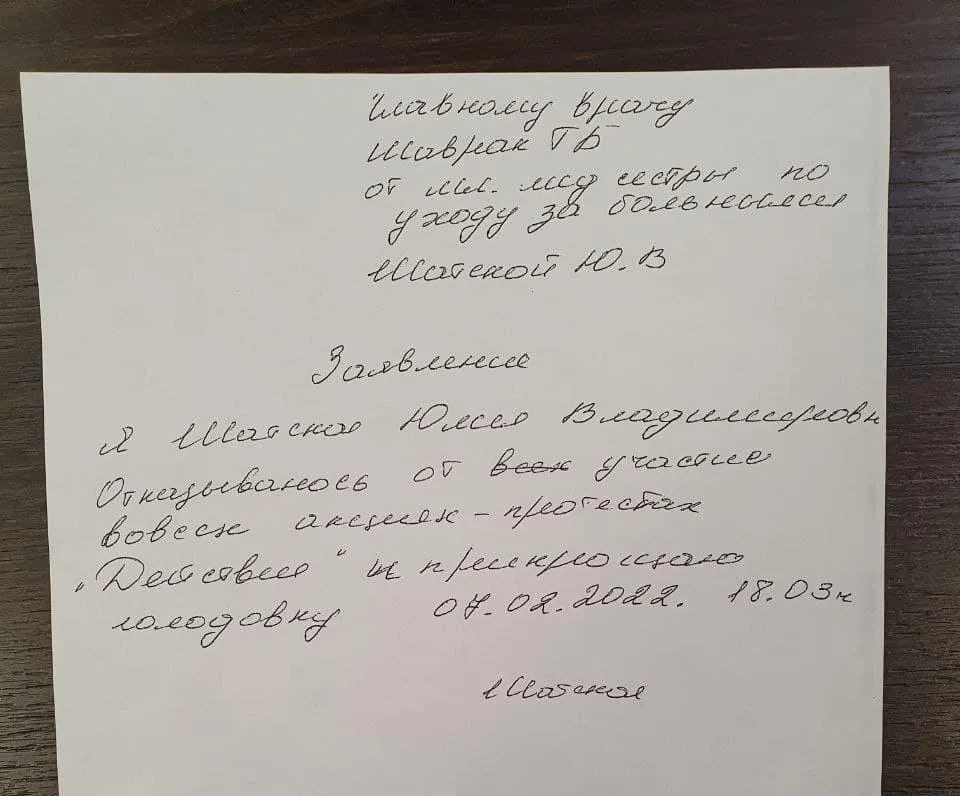 Главному врачу
Шаврак ТБ
от мл. мед сестры по
уходу за больными
Шатской Ю.В
Заявление
Я Шатская Юлия Владимировн
Отказываюсь от всех участие
вовсех акциях-протестах
"Действия" и прикрощаю
голодовку 07.02.2022. 18.03ч
Шатская